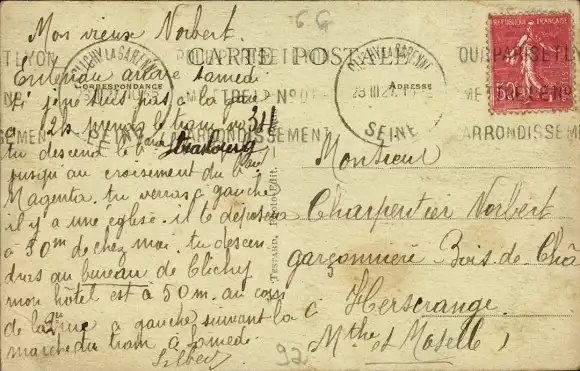 6G
Mon vieux Norbert.
Entendu arrive samedi
si je ne suis pas à la gare
à 12h prends le tram No 34
tu descend le Bard Strasbourg
jusqu'au croisement du Bard
Magenta. tu verras à gauche
il y a une église. il te dépose
à 50m de chez moi. tu descen
dras au bureau de Clichy
mon hotel est à 50 m. au coin
de la rue à gauche suivant la
marche du tram à samedi.
CARTE POSTALE
CORRESPONDANCE
ADRESSE
CLICHY LA GARENNE
SEINE
CLICHY LA GARENNE
SEINE
ARRONDISSEMENT
ARRONDISSEM
REPUBLIQUE FRANÇAISE
50
TESTARD, Photo-Edit.
Monsieur
Charpentier Norbert
garçonnière Bois de Châ
à Herserange
Mthe et Moselle
92